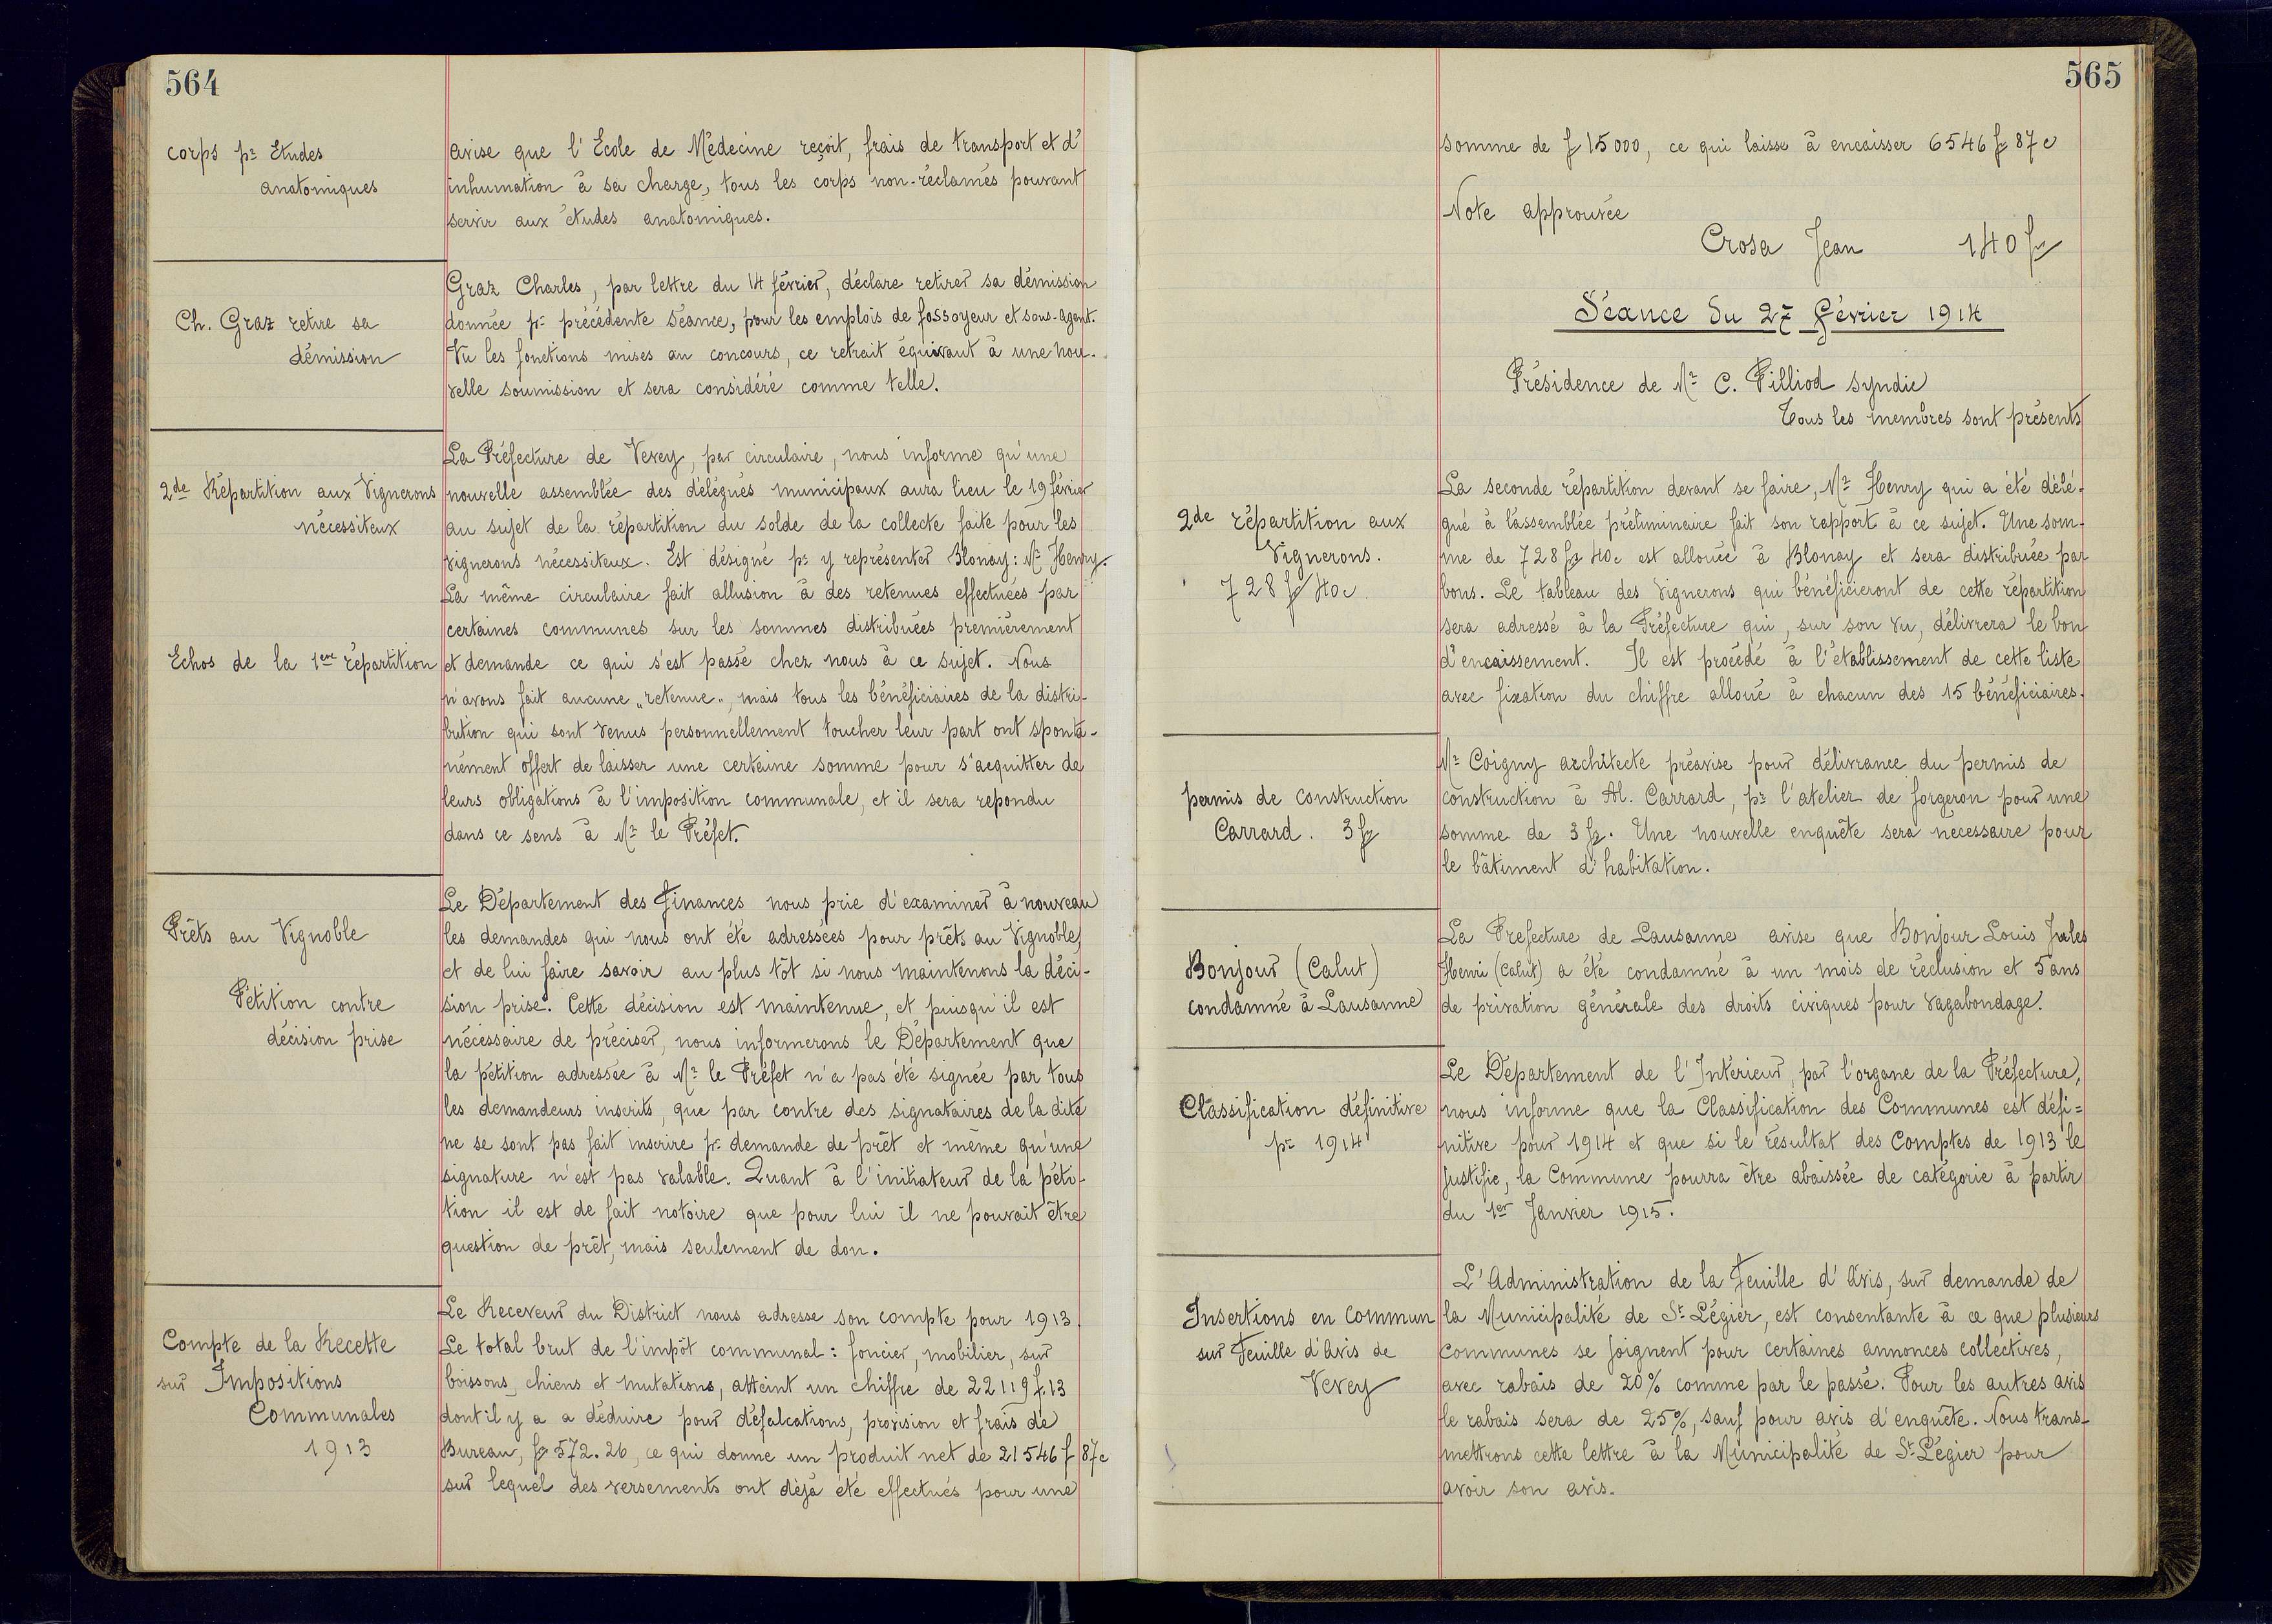 564
corps pr Etudes
anatomiques
avise que l'Ecole de Médecine reçoit, frais de transport et d'
inhumation à sa charge, tous les corps non-réclamés pouvant
servir aux études anatomiques.
Ch. Graz retire sa
démission
Graz Charles, par lettre du 14 février, déclare retirer sa démission
donnée pr précédente séance, pour les emplois de fossoyeur et sous-agent.
Vu les fonctions mises au concours, ce retrait équivaut à une nou-
velle soumission et sera considéré comme telle.
2de Répartition aux Vignerons
nécessiteux
La Préfecture de Vevey, par circulaire, nous informe qu'une
nouvelle assemblée des délégués municipaux aura lieu le 19 février
au sujet de la répartition du solde de la collecte faite pour les
vignerons nécessiteux. Est désigné pr y représenter Blonay: Mr Henry.
Echos de la 1ère répartition
La même circulaire fait allusion à des retenues effectuées par
certaines communes sur les sommes distribuées premièrement
et demande ce qui s'est passé chez nous à ce sujet. Nous
n'avons fait aucune „retenue„, mais tous les bénéficiaires de la distri-
bution qui sont venus personnellement toucher leur part ont sponta-
nément offert de laisser une certaine somme pour s'acquitter de
leurs obligations à l'imposition communale, et il sera repondu
dans ce sens à Mr le Préfet.
Prêts au Vignoble
Pétition contre
décision prise
Le Département des Finances nous prie d'examiner à nouveau
les demandes qui nous ont été adressées pour prêts au Vignoble
et de lui faire savoir au plus tôt si nous maintenons la déci-
sion prise. Cette décision est maintenue, et puisqu'il est
nécessaire de préciser, nous informerons le Département que
la pétition adressée à Mr le Préfet n'a pas été signée par tous
les demandeurs inscrits, que par contre des signataires de la dite
ne se sont pas fait inscrire pr demande de prêt et même qu'une
signature n'est pas valable. Quant à l'initiateur de la péti-
tion il est de fait notoire que pour lui il ne pouvait être
question de prêt, mais seulement de don.
Compte de la Recette
sur Impositions
Communales
1913
Le Receveur du District nous adresse son compte pour 1913.
Le total brut de l'impôt communal: foncier, mobilier, sur
boissons, chiens et mutations, atteint un chiffre de 22119 f. 13
dont il y a a déduire pour défalcations, provision et frais de
Bureau, fr 572.26, ce qui donne un produit net de 21546 f 87c
sur lequel des versements ont déjà été effectués pour une
565
somme de f 15000, ce qui laisse à encaisser 6546 fr 87 c
Note approuvée
Crosa Jean 140 fr
Séance du 27 Février 1914
Présidence de Mr C. Pilliod syndic
Tous les membres sont présents
2de répartition aux
Vignerons.
728 fr 40c
La seconde répartition devant se faire, Mr Henry qui a été délé-
gué à l'assemblée préliminaire fait son rapport à ce sujet. Une som-
me de 728 fr 40c est allouée à Blonay et sera distribuée par
bons. Le tableau des Vignerons qui bénéficieront de cette répartition
sera adressé à la Préfecture qui, sur son vu, délivrera le bon
d'encaissement. Il est procédé à l'établissement de cette liste
avec fixation du chiffre alloué à chacun des 15 bénéficiaires.
permis de construction
Carrard. 3 fr
Mr Coigny architecte préavise pour délivrance du permis de
construction à Al. Carrard, pr l'atelier de forgeron pour une
somme de 3 fr. Une nouvelle enquête sera nécessaire pour
le bâtiment d'habitation.
Bonjour (Calut)
condamné à Lausanne
La Prefecture de Lausanne avise que Bonjour Louis Jules
Henri (Calut) a été condamné à un mois de réclusion et 5 ans
de privation générale des droits civiques pour vagabondage.
Classification définitive
pr 1914
Le Département de l'Intérieur, par l'organe de la Préfecture,
nous informe que la Classification des Communes est défi=
nitive pour 1914 et que si le résultat des Comptes de 1913 le
justifie, la Commune pourra être abaissée de catégorie à partir
du 1er Janvier 1915.
Insertions en commun
sur Feuille d'Avis de
Vevey
L'Administration de la Feuille d'Avis, sur demande de
la Municipalité de St Légier, est consentante à ce que plusieurs
communes se joignent pour certaines annonces collectives,
avec rabais de 20% comme par le passé. Pour les autres avis
le rabais sera de 25%, sauf pour avis d'enquête. Nous trans-
mettrons cette lettre à la Municipalité de St Légier pour
avoir son avis.